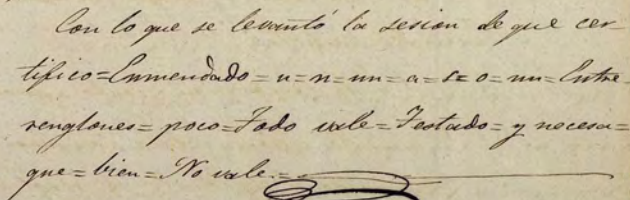 Con lo que se levantó la sesion de que cer-
tifico=Enmendado=u=n=mn=a=se=o=nn=Entre-
renglones=poco=Todo vale=Testado=y necesa=
que=bien=No vale.=